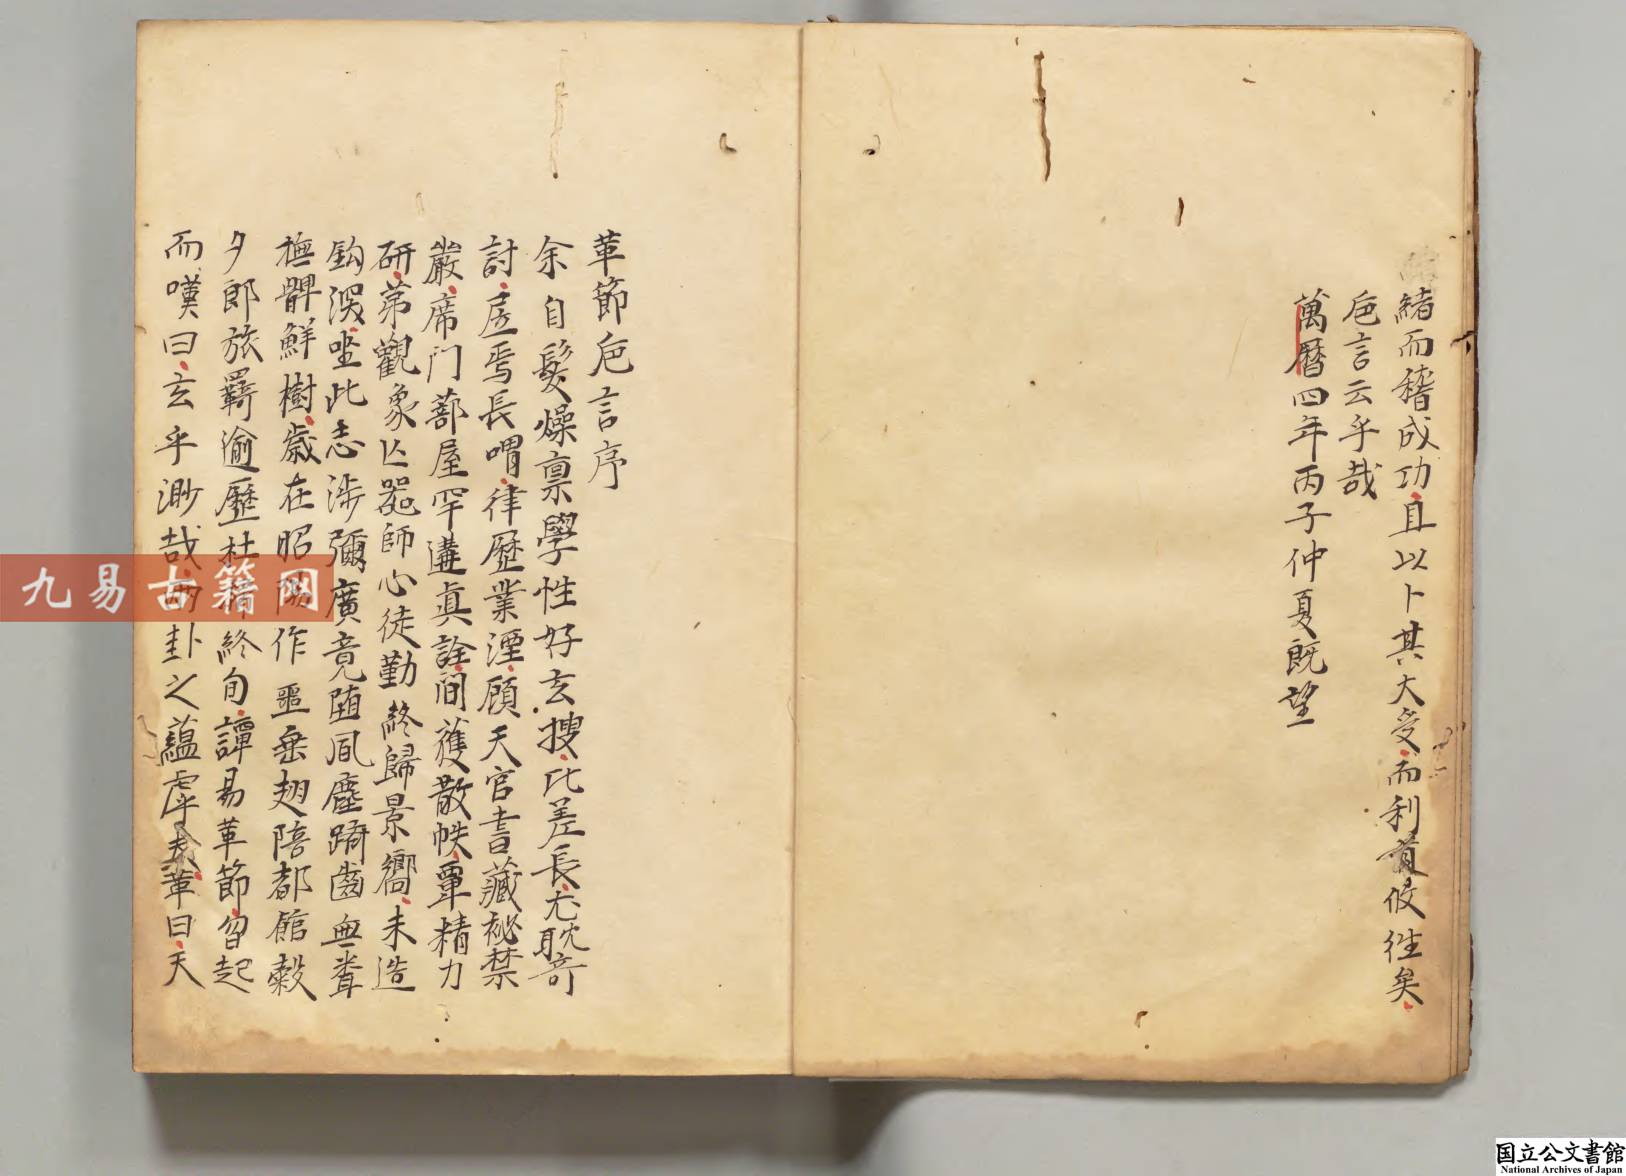 緒而稽成功且以卜其大受而利有攸往矣
巵言云乎哉
萬曆四年丙子仲夏既望
革節巵言序
余自髮燥禀學性好玄搜比差長尤耽奇
討屋焉長喟律歷業湮顧天官書藏祕禁
嚴席门蔀屋罕遘真詮间獲散帙覃精力
研苐觀象亾噐師心徒勤終歸景嚮未造
鈎深坐此志涉彌廣竟堕風塵踦齒無聋
樵髀鮮樹歲在昭陽作噩垂翅陪都館穀
夕郎旅羈逾歷杜終旬譚易革節曾起
而嘆曰玄乎渺哉兩卦之蘊虖夫革曰天
九易古籍网
国立公文書館
National Archives of Japan